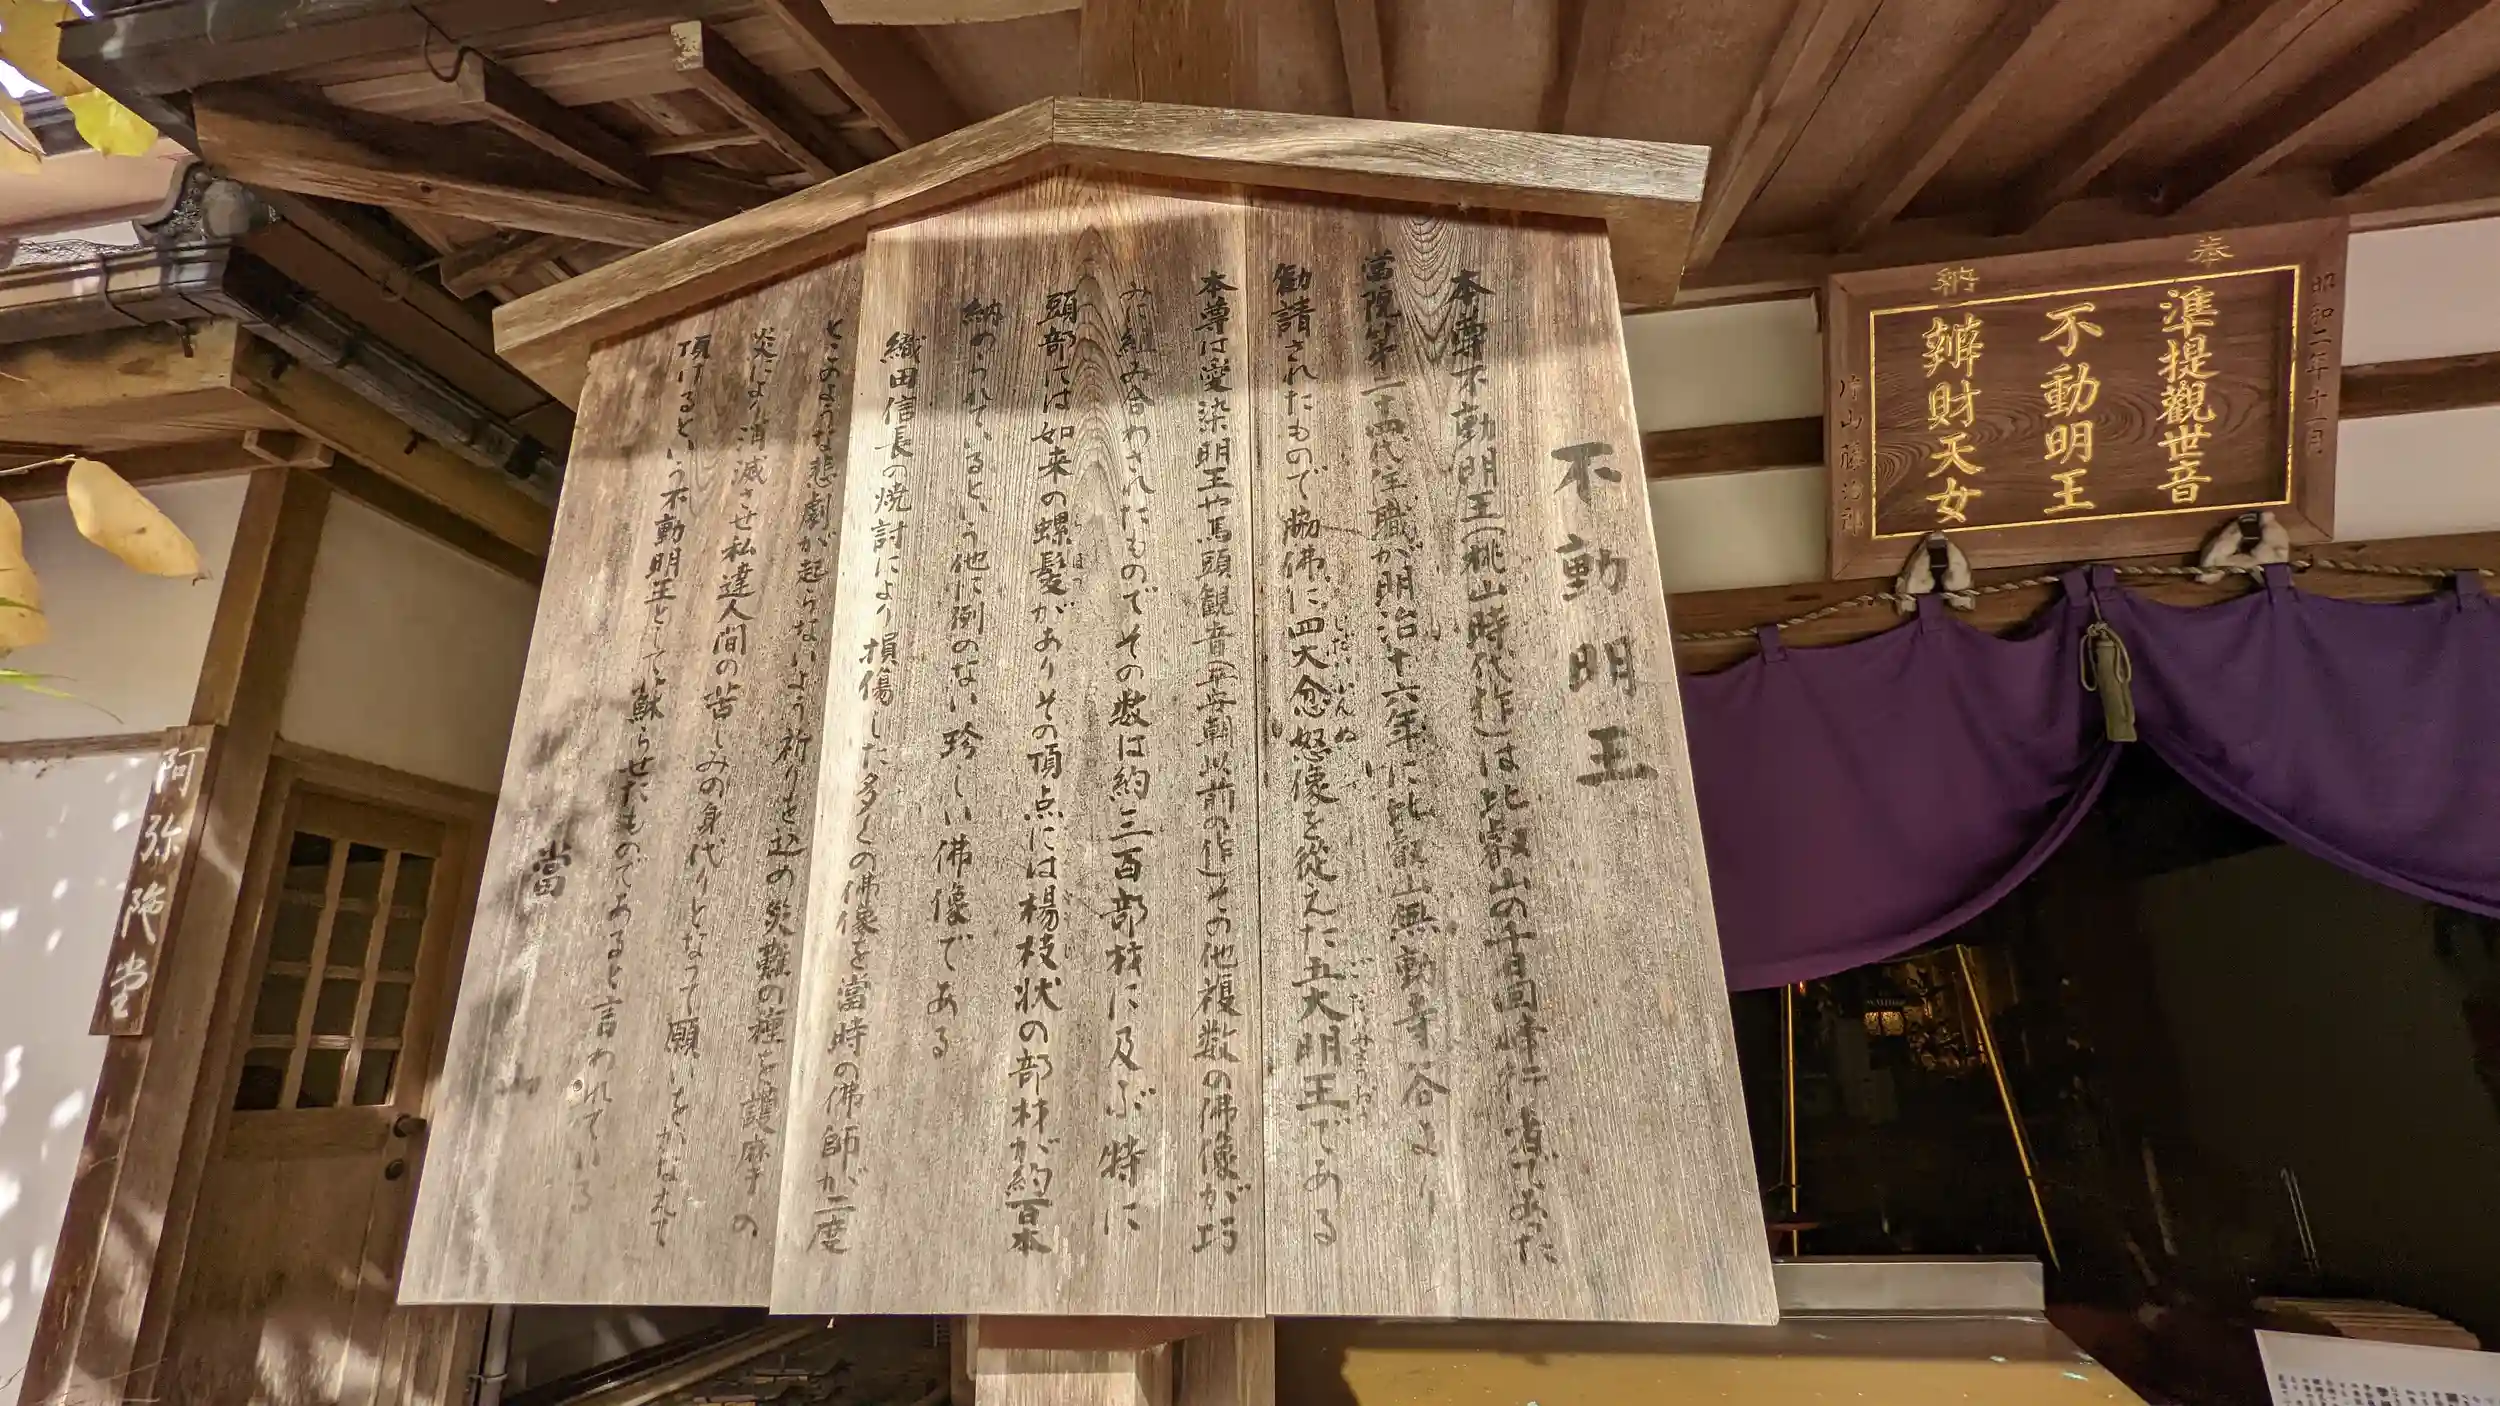 不動明王
本尊不動明王(桃山時代作)は比叡山の千日回峰行者であった
當院第二十四代住職が明治十六年に比叡山無動寺谷より
勧請されたもので脇佛に四大忿怒像を従えた五大明王である
しだいふんぬ
ごだいみょうおう
本尊は愛染明王や馬頭観音(平安朝以前の作)その他複数の佛像が巧
みに組み合わされたものでその数は約三百部材に及ぶ特に
頭部には如来の螺髪がありその頂点には楊枝状の部材が約百本
らほつ
ようじ
納められているという他に例のない珍しい佛像である
織田信長の焼討により損傷した多くの佛像を當時の佛師が二度
とこのような悲劇が起らないよう祈りを込め災難の種を護摩の
炎により消滅させ私達人間の苦しみの身代りとなって願いをかなえて
頂けるという不動明王として蘇らせたものであると言われている
當山
奉納
昭和二年十一月
準提觀世音
不動明王
辨財天女
片山藤治郎
阿弥陀堂